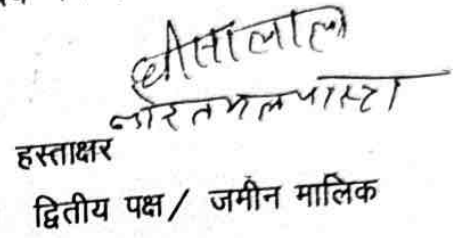 धीसालाल
नोरतमल पास्टा
हस्ताक्षर
द्वितीय पक्ष / जमीन मालिक